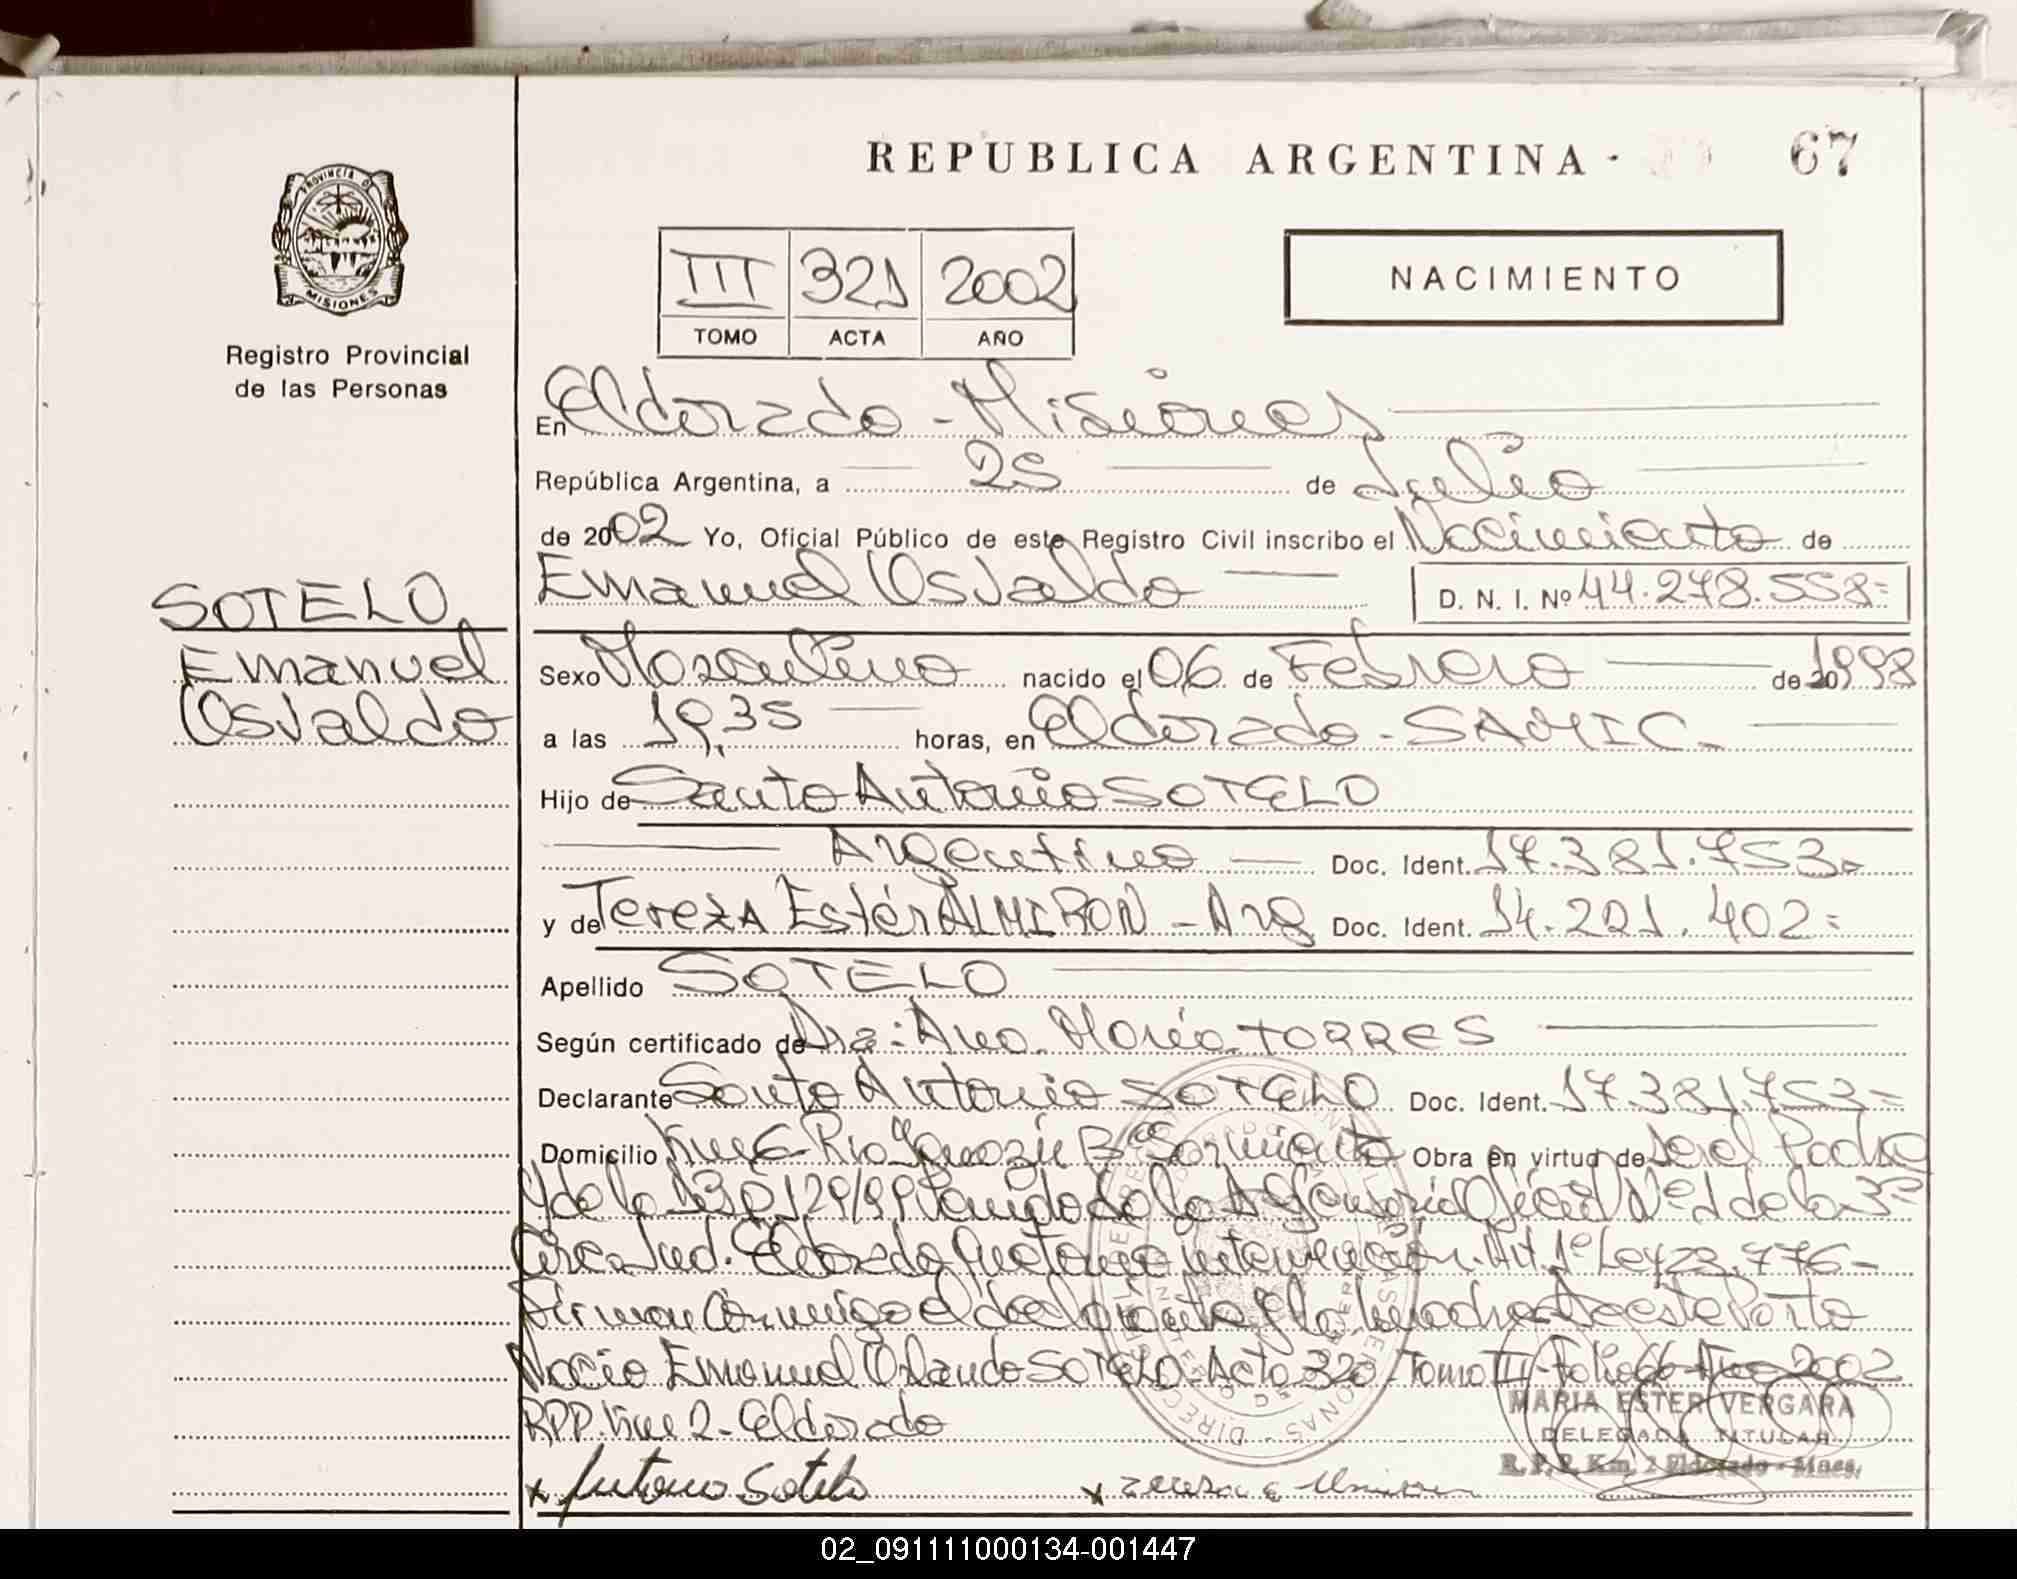 REPUBLICA ARGENTINA - 67
PROVINCIA D
MISIONES
Registro Provincial
de las Personas
III 321 2002
TOMO ACTA AÑO
NACIMIENTO
En Eldorado - Misiones
República Argentina, a 25 de Julio
de 2002 Yo, Oficial Público de este Registro Civil inscribo el Nacimiento de
Emanuel Osvaldo D. N. I. Nº 44.278.558=
SOTELO
Emanuel
Osvaldo
Sexo Masculino nacido el 06 de Febrero de 20 1998
a las 19,35 horas, en Eldorado - SAMIC -
Hijo de Santo Antonio SOTELO
Argentino Doc. Ident. 17.381.753-
y de Tereza Estér ALMIRON - Arg Doc. Ident. 14.221.402=
Apellido SOTELO
Según certificado de Dra: Ana María TORRES
Declarante Santo Antonio SOTELO Doc. Ident. 17.381.753=
Domicilio Km 6 Bº Sarmiento Obra en virtud de
y de la 129/99 de la Oficial Nº 1 de la 3º
Circ. Jud. Eldorado intervención. Art. 1º Ley 23.776-
Firman Conmigo el declarante y la madre De este Parto
Nació Emanuel Orlando SOTELO - Acta 320 - Tomo III - Folio 66 - Año 2002
RPP. Km 2 - Eldorado
MARIA ESTER VERGARA
DELEGADA TITULAR
R. P. P. Km. 2 Eldorado - Mnes.
x Antonio Sotelo x
02_091111000134-001447